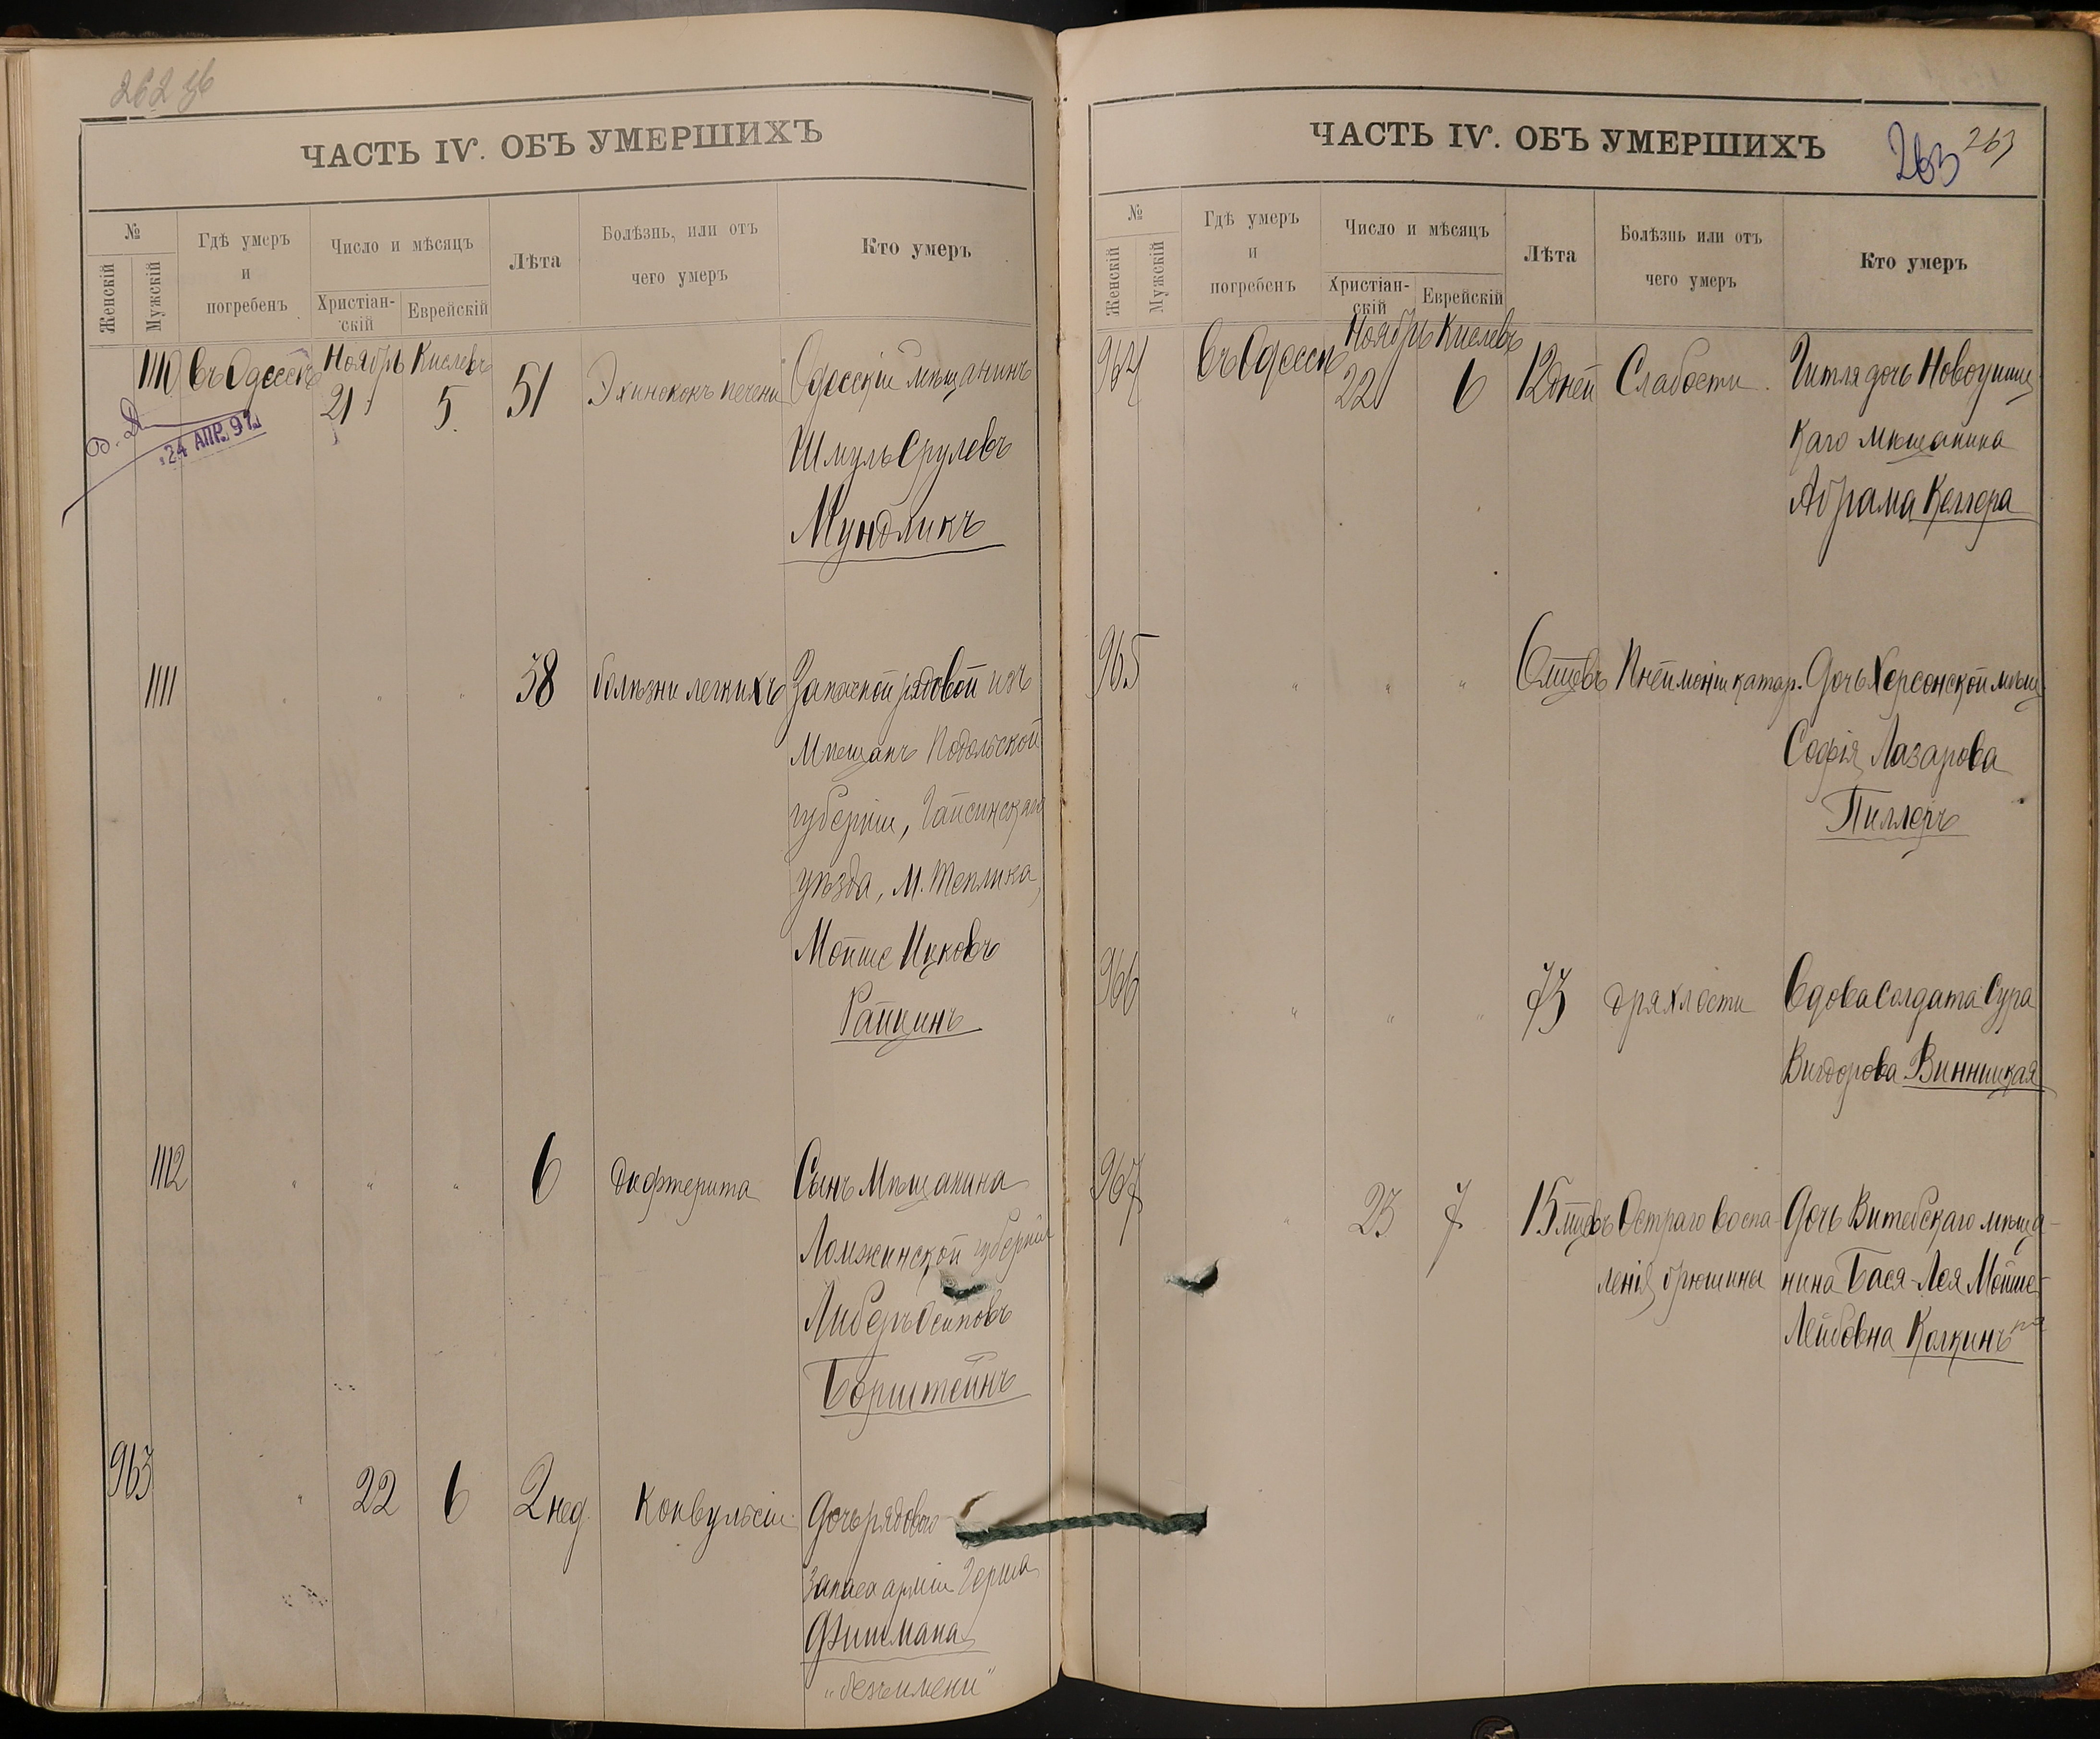 262 об
ЧАСТЬ IV. ОБЪ УМЕРШИХЪ
№
Женскій
Мужскій
Гдѣ умеръ
и
погребенъ
Число и мѣсяцъ
Христіан-
скій
Еврейскій
Лѣта
Болѣзнь, или отъ
чего умеръ
Кто умеръ
1110 въ Одессѣ Ноябрь 21 Кислевъ 5 51 Эхинококъ печени Одесскій мѣщанинъ
24 АПР. 97
Шмуль Срулевъ
Мундликъ
1111 " " " 38 болѣзни легкихъ Запасной рядовой изъ
мѣщанъ Подольской
губерніи, Гайсинскаго
уѣзда, м. Теплика,
Мойше Ицковъ
Райцинъ
1112 " " " 6 дифтерита Сынъ мѣщанина
Ломжинской губерніи
Либеръ Осиповъ
Борштейнъ
963 " 22 6 2 нед. Конвульсіи Дочь рядового
запаса арміи Герша
Фишмана
„безъ имени“
ЧАСТЬ IV. ОБЪ УМЕРШИХЪ
263 263
№
Женскій
Мужскій
Гдѣ умеръ
и
погребенъ
Число и мѣсяцъ
Христіан-
скій
Еврейскій
Лѣта
Болѣзнь или отъ
чего умеръ
Кто умеръ
964 въ Одессѣ Ноябрь 22 Кислевъ 6 12 дней Слабости Гитля дочь Новоушиц-
каго мѣщанина
Абрама Келлера
965 " " " 6 мцевъ Пнеймоніи катар. Дочь Херсонской мѣщ.
Софія Лазарова
Пиллеръ
966 " " " 73 дряхлости Вдова солдата Сура
Вигдорова Винницкая
967 " 23 7 15 мцевъ Остраго воспа- Дочь Витебскаго мѣща-
ленія брюшины нина Бася-Лея Мойше-
Лейбовна Колкинъ